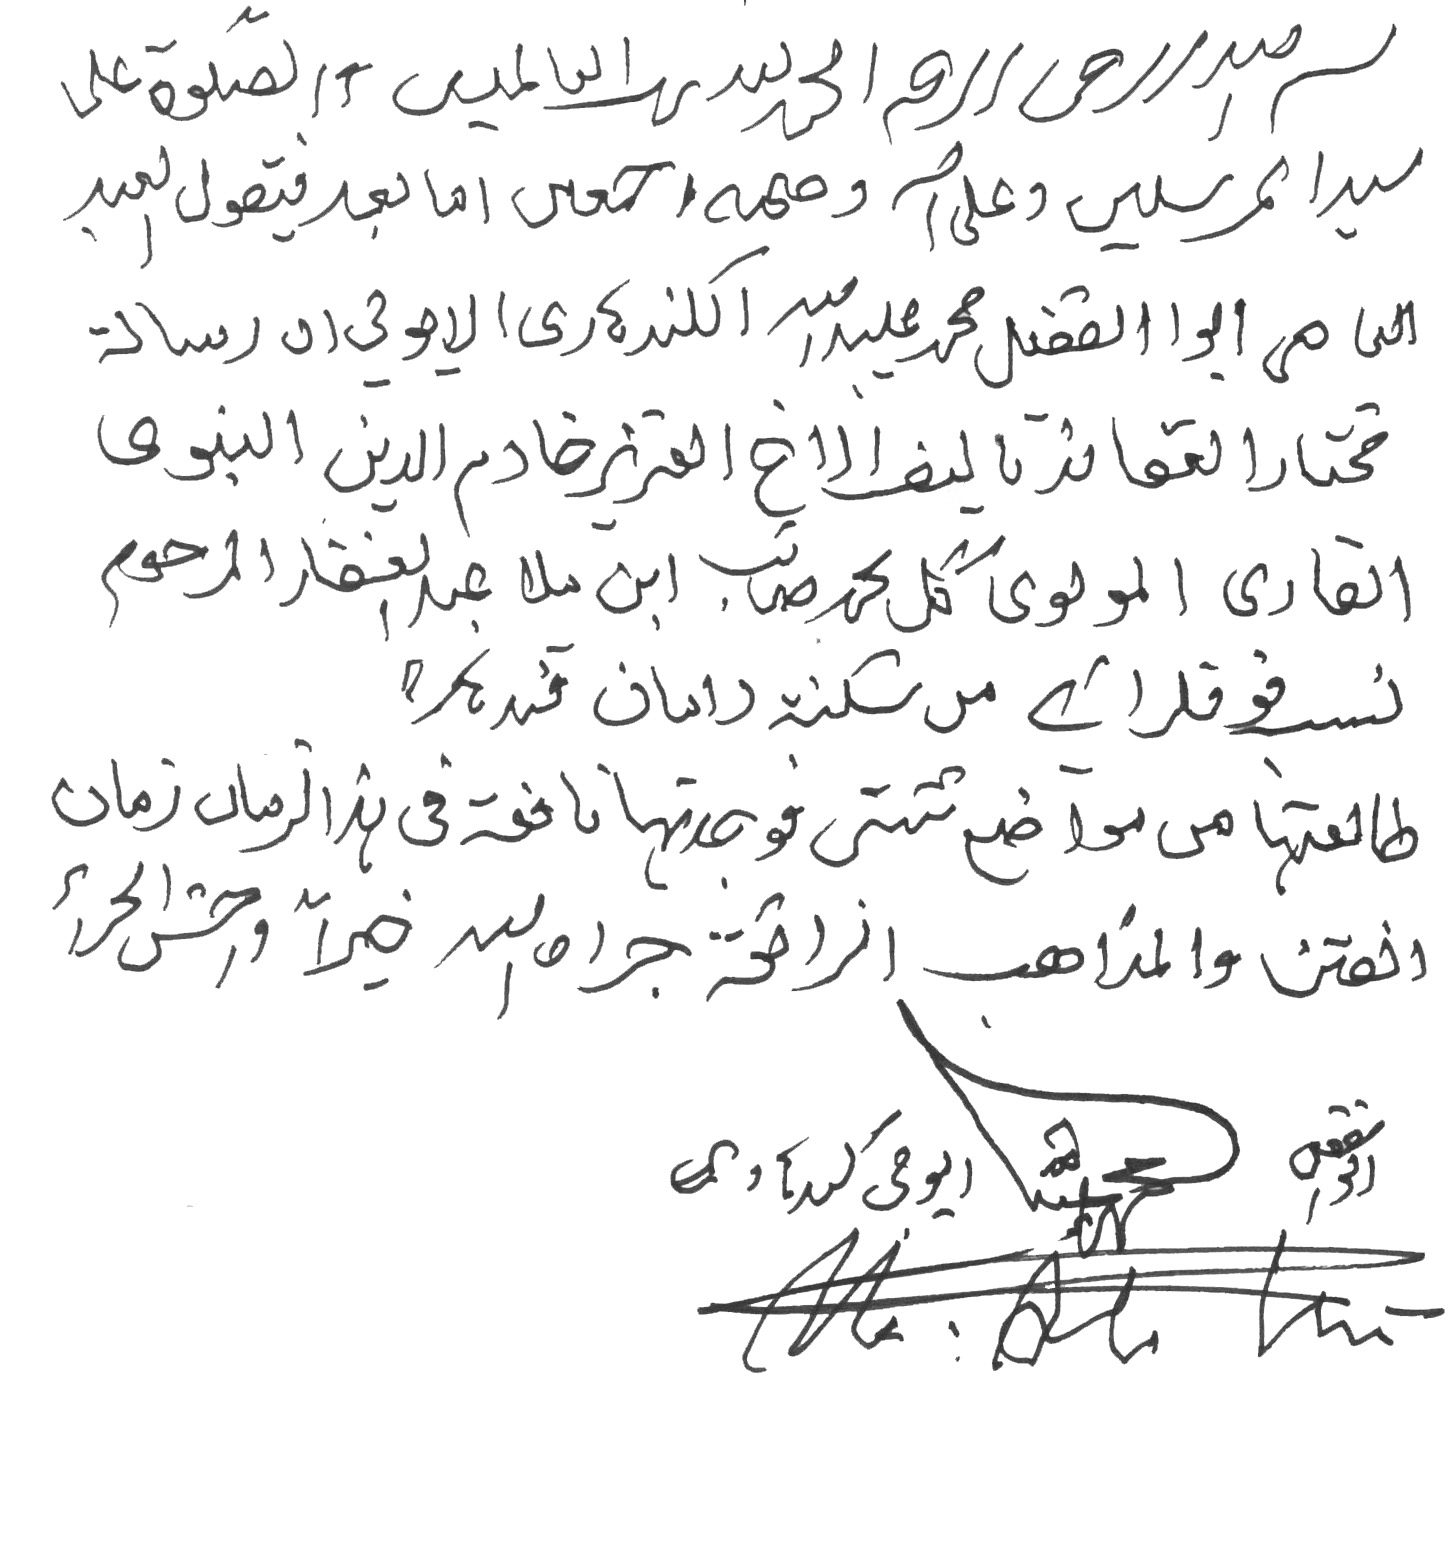 بسم الله الرحمن الرحيم الحمد لله رب العالمين والصلوة على
سيد المرسلين وعلى آله وصحبه اجمعين اما بعد فيقول العبد
ابوا الفضل محمد عبيد الله الكندهارى الايوبى ان رسالة
مختار العقائد تاليف الاخ العزيز خادم الدين النبوى
القارى المولوى گل محمد صاحب ابن ملا عبد الغفار المرحوم
من سكنة دامان قندهار
طالعتها من مواضع شتى فوجدتها نافعة فى هذا الزمان زمان
الفتن والمذاهب الزائغة جزاه الله خيراً واحسن الجزاء
ابو الفضل محمد عبيد الله ايوبى كندهاوى